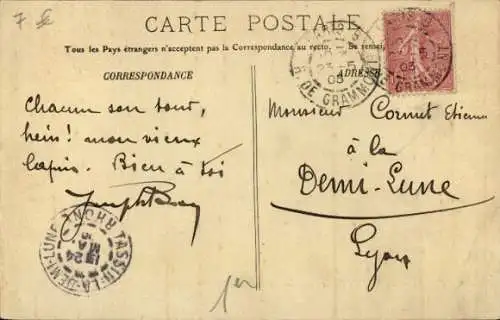 7 f
CARTE POSTALE
Tous les Pays étrangers n'acceptent pas la Correspondance au recto. Se rensei
CORRESPONDANCE
ADRESSE
DE GRAMMONT
Chacun son tout,
hein! mon vieux
lapin. Bien à toi
Monsieur Cornut Etienne
à la
Demi-Lune
Lyon
TASSIN-LA-DEMI-LUNE
RHONE
24
1er